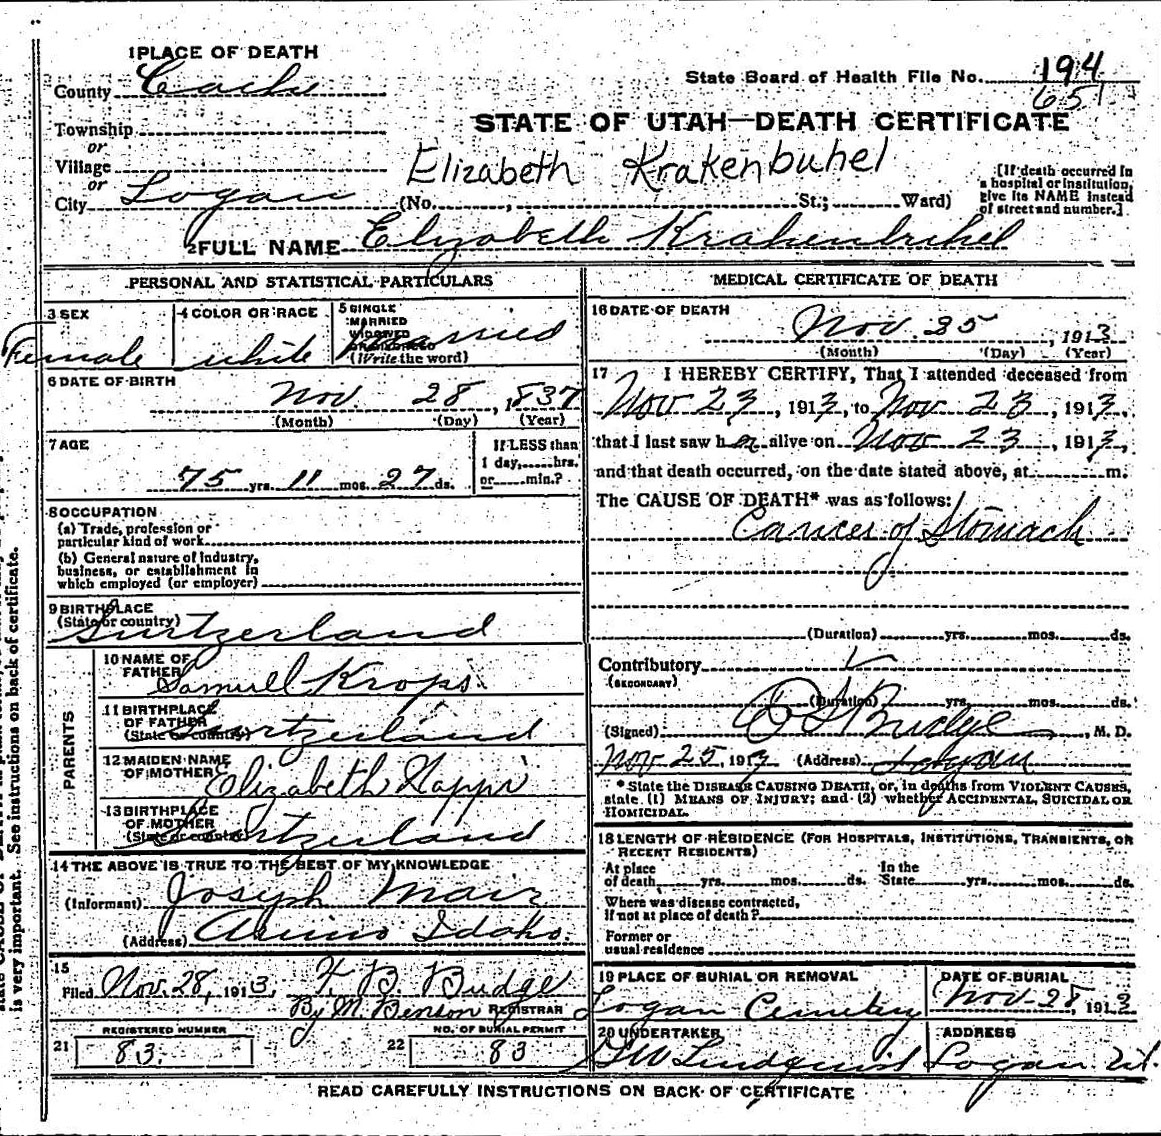 1 PLACE OF DEATH
County Cache
State Board of Health File No. 194
651
Township
or
Village
or
City Logan
STATE OF UTAH—DEATH CERTIFICATE
Elizabeth Krakenbuhel
(No. , St.; Ward)
[If death occurred in
a hospital or institution,
give its NAME instead
of street and number.]
2 FULL NAME Elizabeth Krakenbuhel
PERSONAL AND STATISTICAL PARTICULARS
3 SEX
Female
4 COLOR OR RACE
white
5 SINGLE
MARRIED
WIDOWED
OR DIVORCED
(Write the word)
Married
6 DATE OF BIRTH
Nov. 28, 1837
(Month) (Day) (Year)
7 AGE
75 yrs. 11 mos. 27 ds.
If LESS than
1 day, hrs.
or min.?
8 OCCUPATION
(a) Trade, profession or
particular kind of work
(b) General nature of industry,
business, or establishment in
which employed (or employer)
9 BIRTHPLACE
(State or country)
Surtzerland
PARENTS
10 NAME OF
FATHER
Samuell Krops.
11 BIRTHPLACE
OF FATHER
(State or country)
Surtzerland
12 MAIDEN NAME
OF MOTHER
Elizabeth Kappi
13 BIRTHPLACE
OF MOTHER
(State or country)
Surtzerland
14 THE ABOVE IS TRUE TO THE BEST OF MY KNOWLEDGE
(Informant) Joseph Mair
(Address) Arimo Idaho.
15
Filed Nov. 28, 1913, F. B. Budge
By M. Benson REGISTRAR
REGISTERED NUMBER
21 83.
NO. OF BURIAL PERMIT
22 83
MEDICAL CERTIFICATE OF DEATH
16 DATE OF DEATH
Nov. 25, 1913
(Month) (Day) (Year)
17 I HEREBY CERTIFY, That I attended deceased from
Nov 23, 1913, to Nov 23, 1913,
that I last saw her alive on Nov 23, 1913,
and that death occurred, on the date stated above, at m.
The CAUSE OF DEATH* was as follows:
Cancer of Stomach
(Duration) yrs. mos. ds.
Contributory
(SECONDARY)
(Duration) yrs. mos. ds.
(Signed) Budge, M. D.
Nov 25, 1913 (Address) Logan
* State the DISEASE CAUSING DEATH, or, in deaths from VIOLENT CAUSES,
state (1) MEANS OF INJURY; and (2) whether ACCIDENTAL, SUICIDAL OR
HOMICIDAL.
18 LENGTH OF RESIDENCE (FOR HOSPITALS, INSTITUTIONS, TRANSIENTS, OR
RECENT RESIDENTS)
At place
of death yrs. mos. ds.
In the
State yrs. mos. ds.
Where was disease contracted,
If not at place of death?
Former or
usual residence
19 PLACE OF BURIAL OR REMOVAL
Logan Cemetery
DATE OF BURIAL
Nov-28, 1913
20 UNDERTAKER
Lindquist
ADDRESS
Logan Ut.
READ CAREFULLY INSTRUCTIONS ON BACK OF CERTIFICATE
is very important. See instructions on back of certificate.